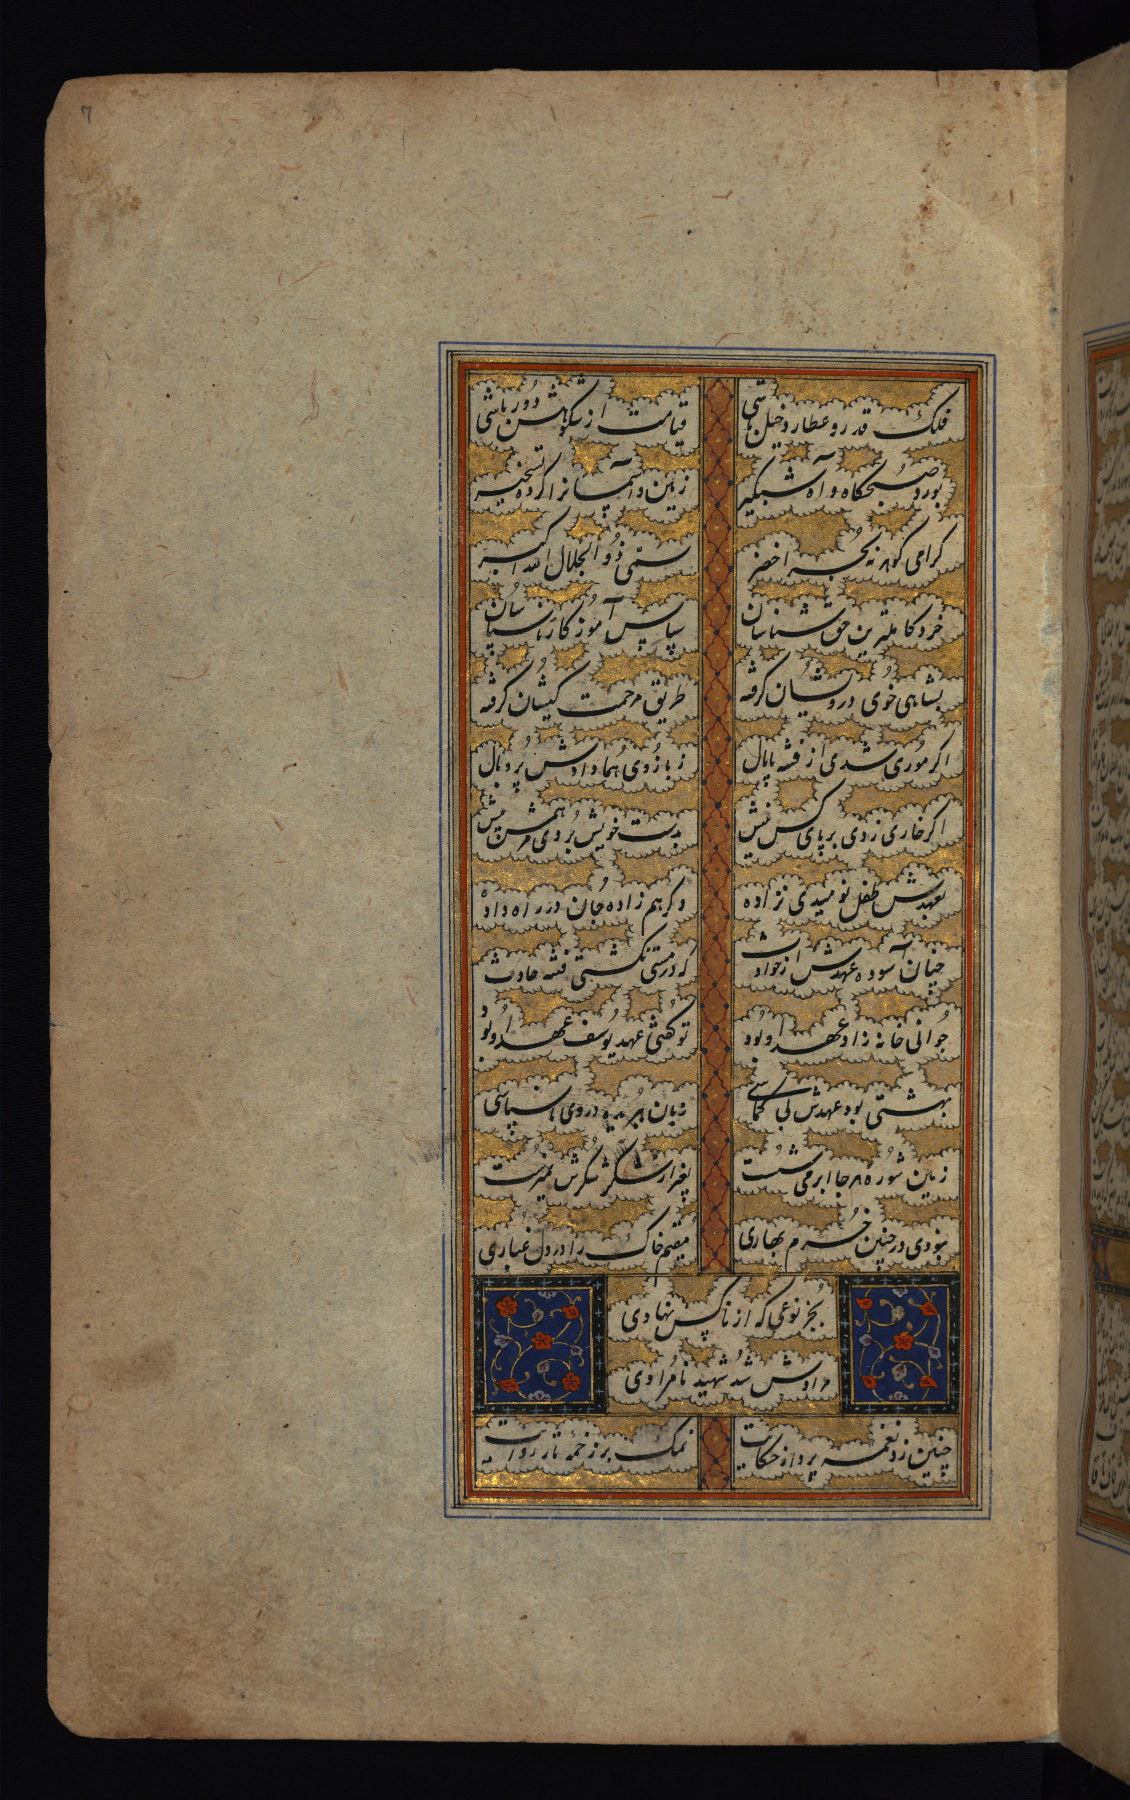 7
فلک قدر و عطارد خیل باشی قیامت از شکوهش دور باشی
بورد صبحگاه و آه شبگیر زمین و آسمانرا کرده تسخیر
گرامی گوهر نه بحر اخضر سمّی ذُو الجلال الله اکبر
خرد کاملترین حق شناسان سپاس آموز کار ناسپاسان
بشاهی خوی درویشان گرفته طریق مرحمت کیشان گرفته
اگر موری شدی از فتنه پامال ز بازوی هما دادش پر و بال
اگر خاری زدی بر پای کس نیش بدست خویش بردی مرهمش پیش
بعهدش طفل نومیدی نزاده وگر هم زاده جان در راه داده
چنان آسوده عهدش از حوادث که در مستی نگشتی فتنه حادث
جوانی خانه زاد عهد او بود تو گفتی عهد یوسف عهد او بود
بهشتی بود عهدش بی زبان ببریده در وی ناسپاسی
زمین شوره هرجا ابر می شست بغیر از شکر شکرش نمیرست
نبودی در چنین خرم بهاری مقیم خاک را در دل غباری
بجز نوعی که از ناکس نهادی
مرادش شد شهید نامرادی
چنین زد نغمه پرداز حکایت نمک بر زخمه تار روایت